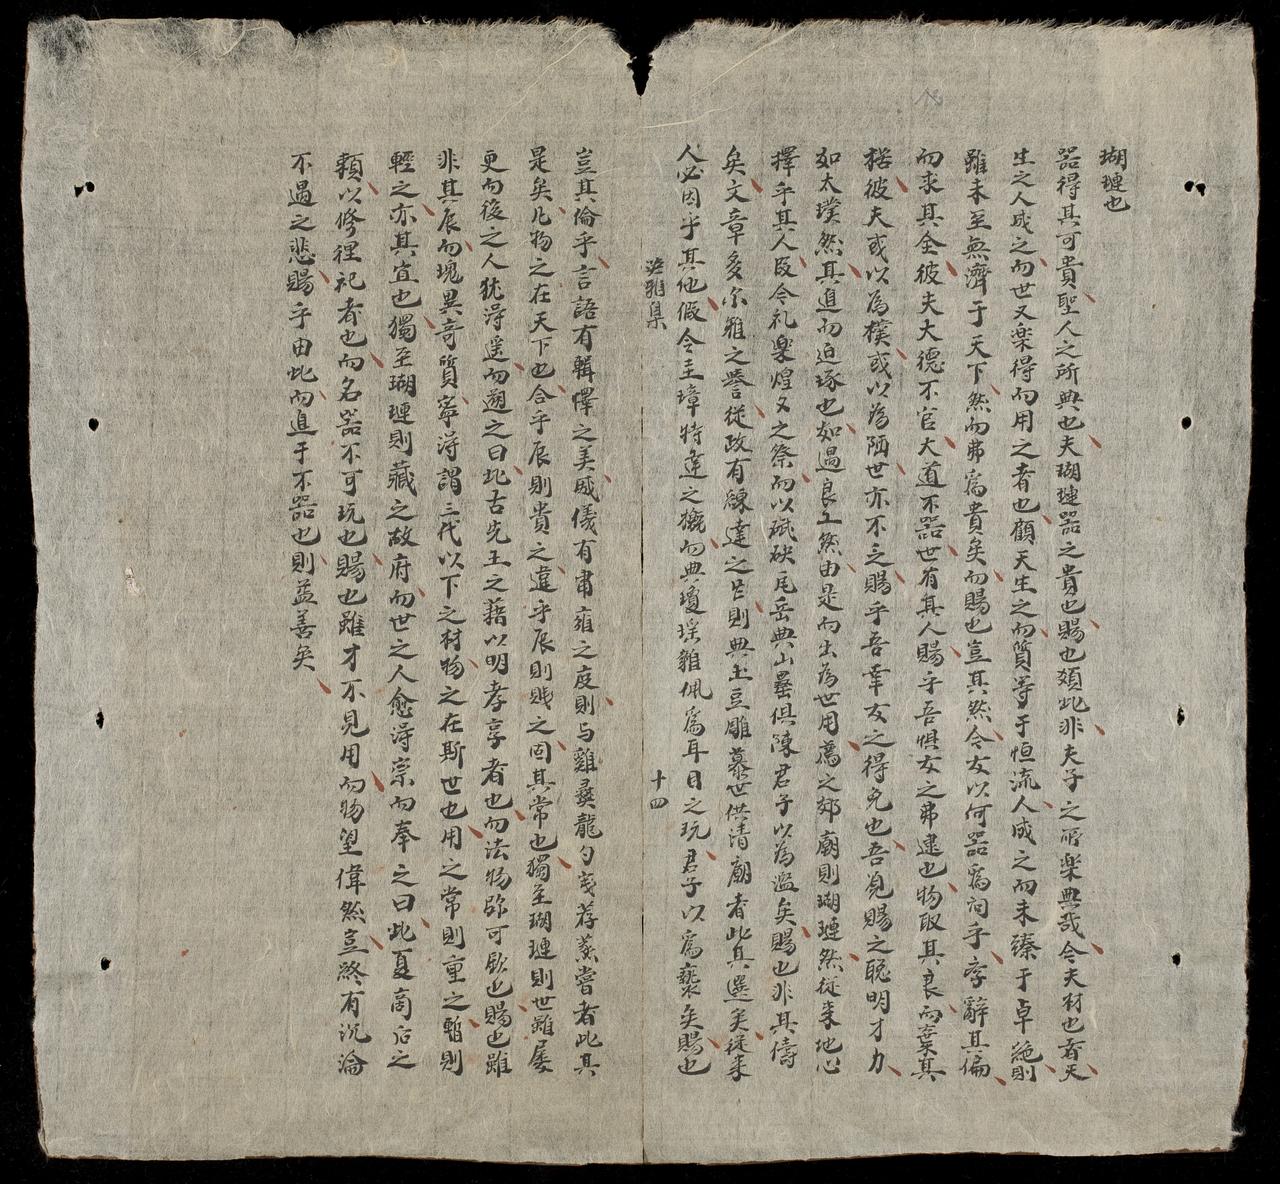 瑚璉也
器得其可貴聖人之所與也夫瑚璉器之貴也賜也頬此非夫子之所樂與哉今夫材也者天
生之人成之而世又樂得而用之者也顧天生之而質等于恒流人成之而未臻于卓絶則
雖未至無濟于天下然而弗爲貴矣而賜也豈其然令女以何器爲詞乎李辭其偏
而求其全彼夫大德不官大道不器世有其人賜乎吾惧女之弗逮也物取其良而棄其
楛彼夫或以為樸或以為陋世亦不乏賜乎吾幸女之得免也吾覓賜之聰明才力
如太璞然其進而迫琢也如過良工然由是而出為世用薦之郊廟則瑚璉然從来地心
擇乎其人叚令礼樂煌文之祭而以碔砆瓦岳與山罍俱陳君子以為濫矣賜也非其儔
矣文章多尔雅之譽從政有練達之才則與土豆雕簋世供清廟者此其選矣從来
人必因乎其他假令圭璋特達之機而與瓊瑤雜佩爲耳目之玩君子以爲褻矣賜也
集
十四
豈其倫乎言語有輯懌之美威儀有肅雍之度則与雞彛龍勺寔荐蒸嘗者此其
是矣凡物之在天下也合乎辰則貴之違乎辰則賎之固其常也獨至瑚璉則世雖屡
更而後之人犹淂遥而遡之曰此古先王之藉以明孝享者也而法物弥可歆也賜也雖
非其辰而塊異竒質寧淂謂三代以下之材物之在斯世也用之常則重之暫則
輕之亦其宜也獨至瑚璉則藏之故府而世之人愈淂宗而奉之曰此夏商后之
頼以修禋祀者也而名器不可玩也賜也雖才不見用而物望偉然豈終有沉淪
不遇之悲賜乎由此而進于不器也則益善矣